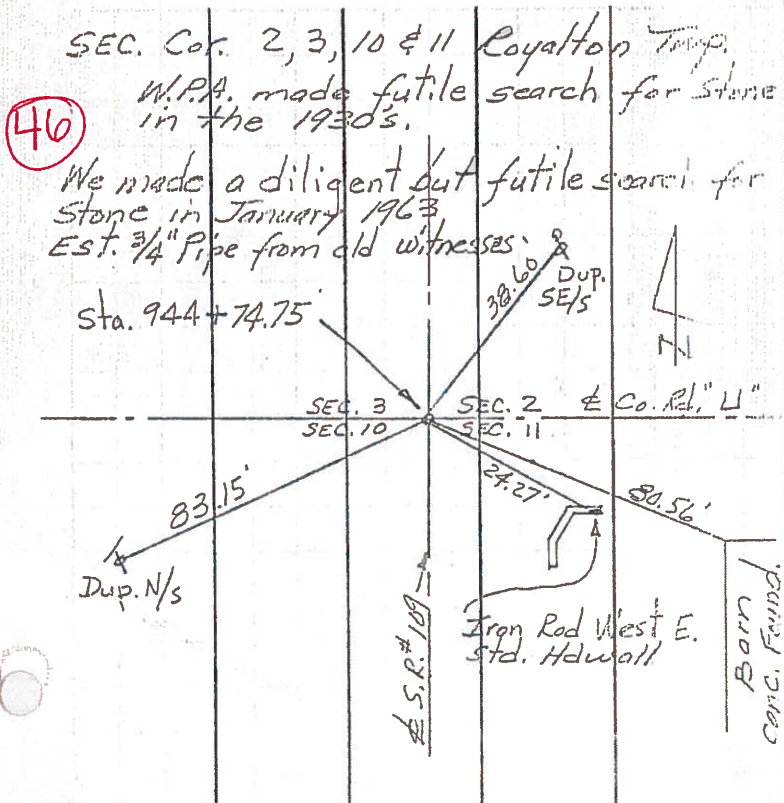 SEC. Cor. 2, 3, 10 & 11 Royalton Twp.
W.P.A. made futile search for Stone
in the 1930's.
46
We made a diligent but futile search for
Stone in January 1963
Est. 3/4" Pipe from old witnesses.
38.60
Dup.
SE/s
Sta. 944 + 74.75'
SEC. 3
SEC. 2
℄ Co. Rd. "U"
SEC. 10
SEC. 11
83.15'
24.27'
80.56'
Dup. N/s
℄ S.R. # 109
Iron Rod West E.
Std. Hdwall
Barn
Conc. Found.